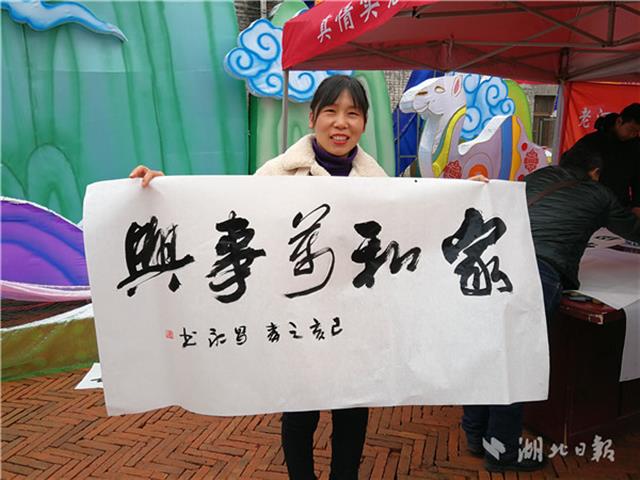 真情实
老
家和萬事興
己亥之春
湖北日報